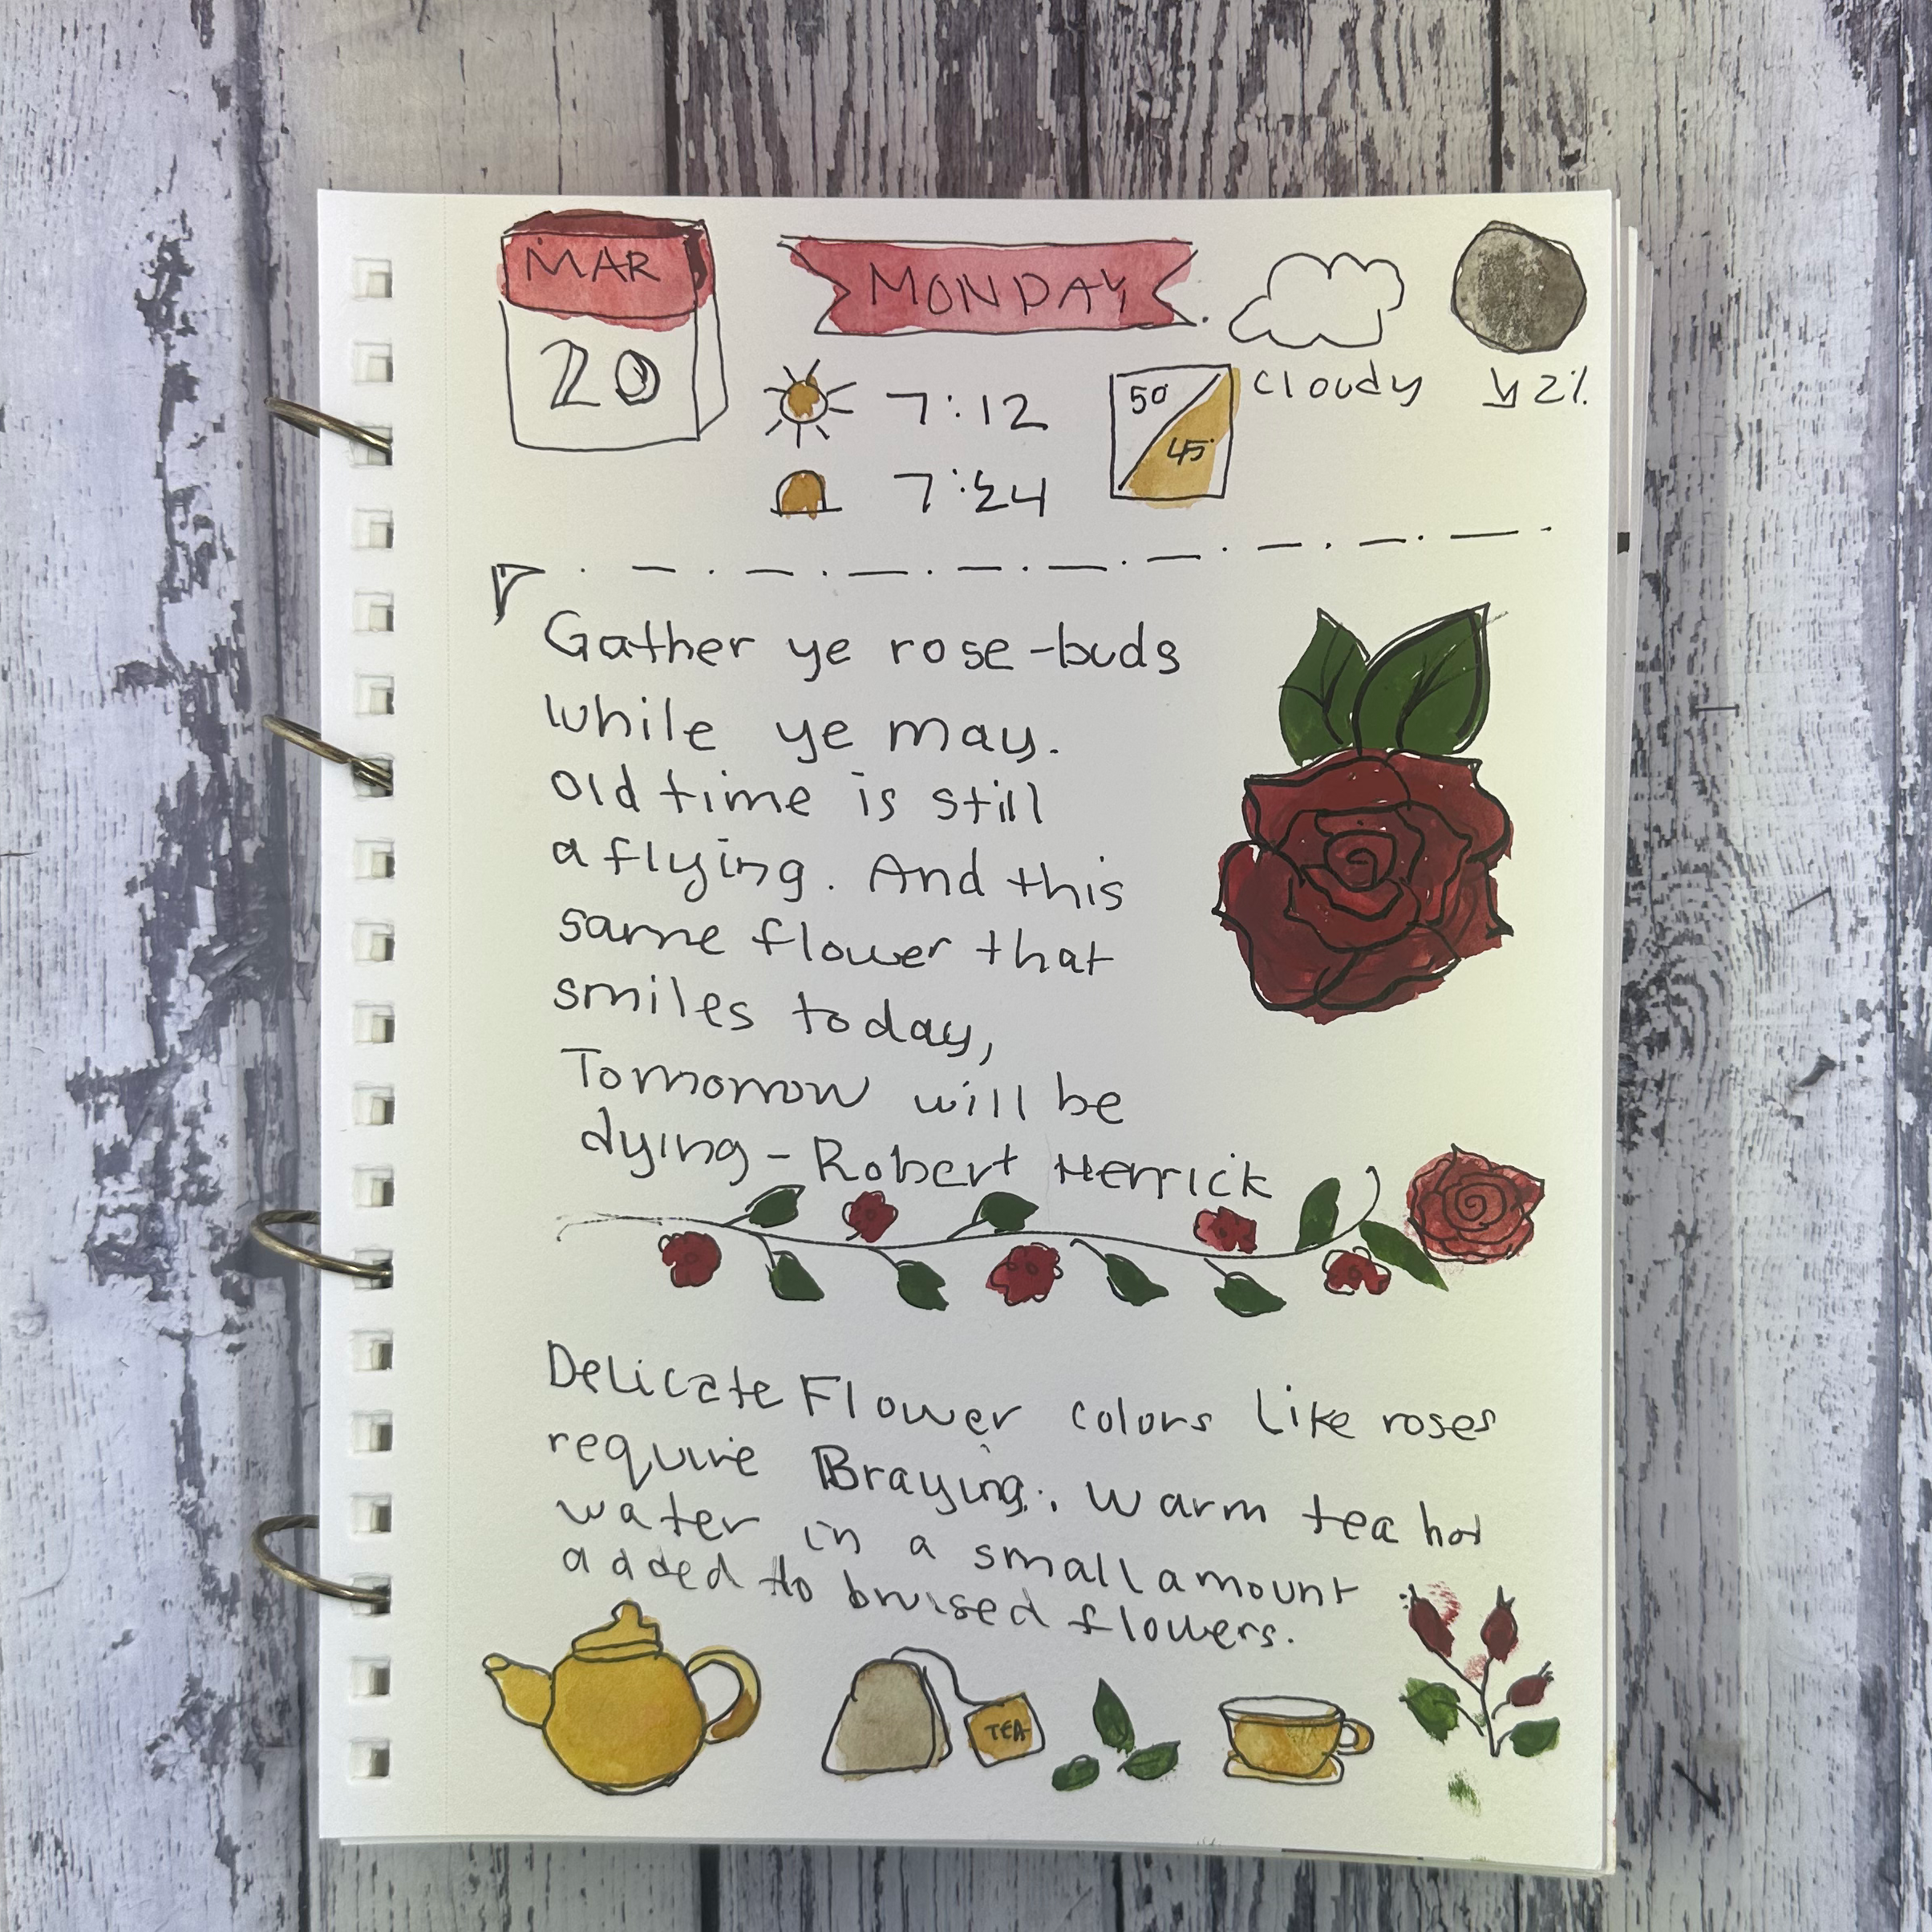 MAR
20
MONDAY
7:12
7:24
50
45
cloudy
↘ 2%
Gather ye rose-buds
while ye may.
old time is still
a flying. And this
same flower that
smiles today,
Tomorrow will be
dying - Robert Herrick
Delicate Flower colors like roses
require Braying. Warm tea hot
water in a small amount
added to bruised flowers.
TEA